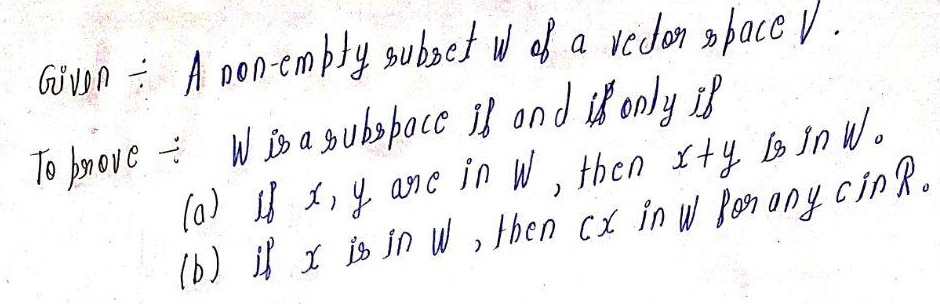 Given ÷ A non-empty subset W of a vector space V.
To prove ÷ W is a subspace if and if only if
(a) if x, y are in W, then x+y is in W.
(b) if x is in W, then cx in W for any c in R.